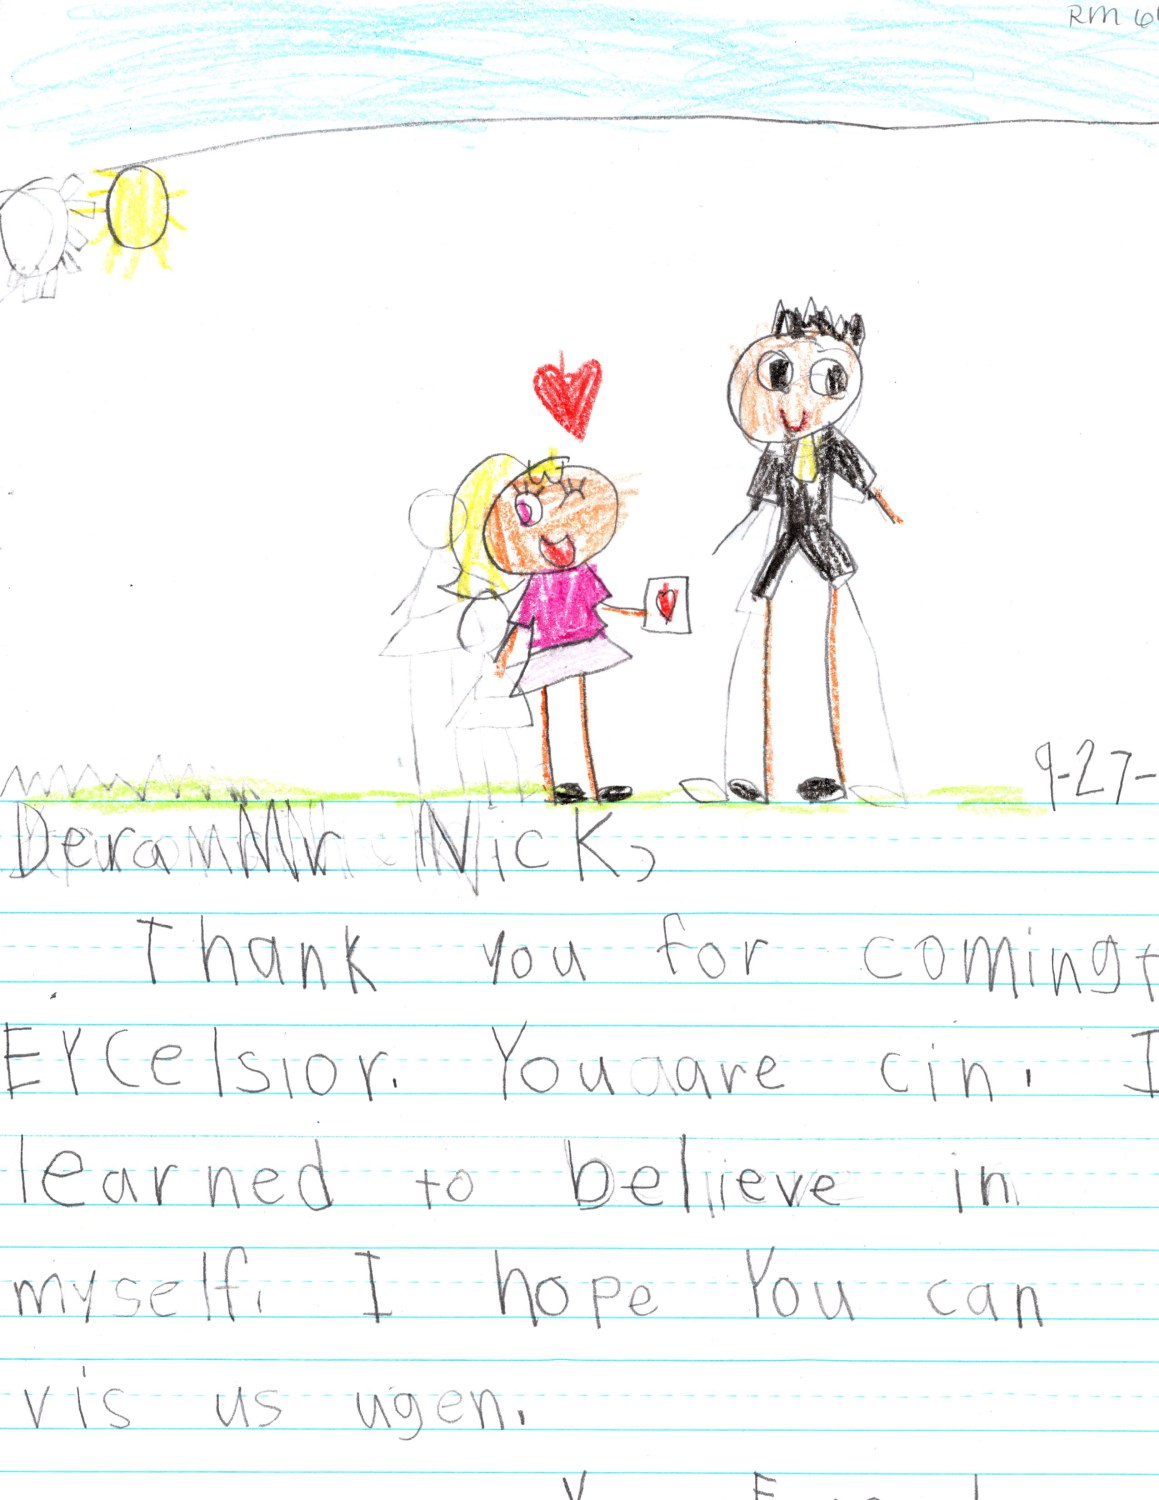 RM 6
9-27-
Dera Mr Nick,
Thank you for coming t
EYCelsior. You are cin. I
learned to believe in
myself. I hope You can
vis us ugen.